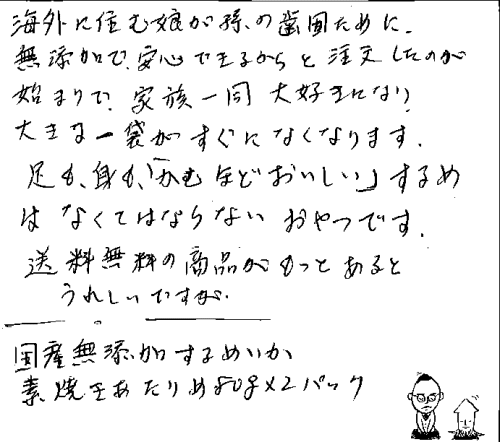 海外に住む娘が孫の歯固ために、
無添加で、安心できるからと注文したのが
始まりで、家族一同大好きになり
大きな一袋がすぐになくなります。
足も、身も、「かむほどおいしい」するめ
はなくてはならないおやつです。
送料無料の商品がもっとあると
うれしいですが。
国産無添加するめいか
素焼きあたりめ80g×2パック